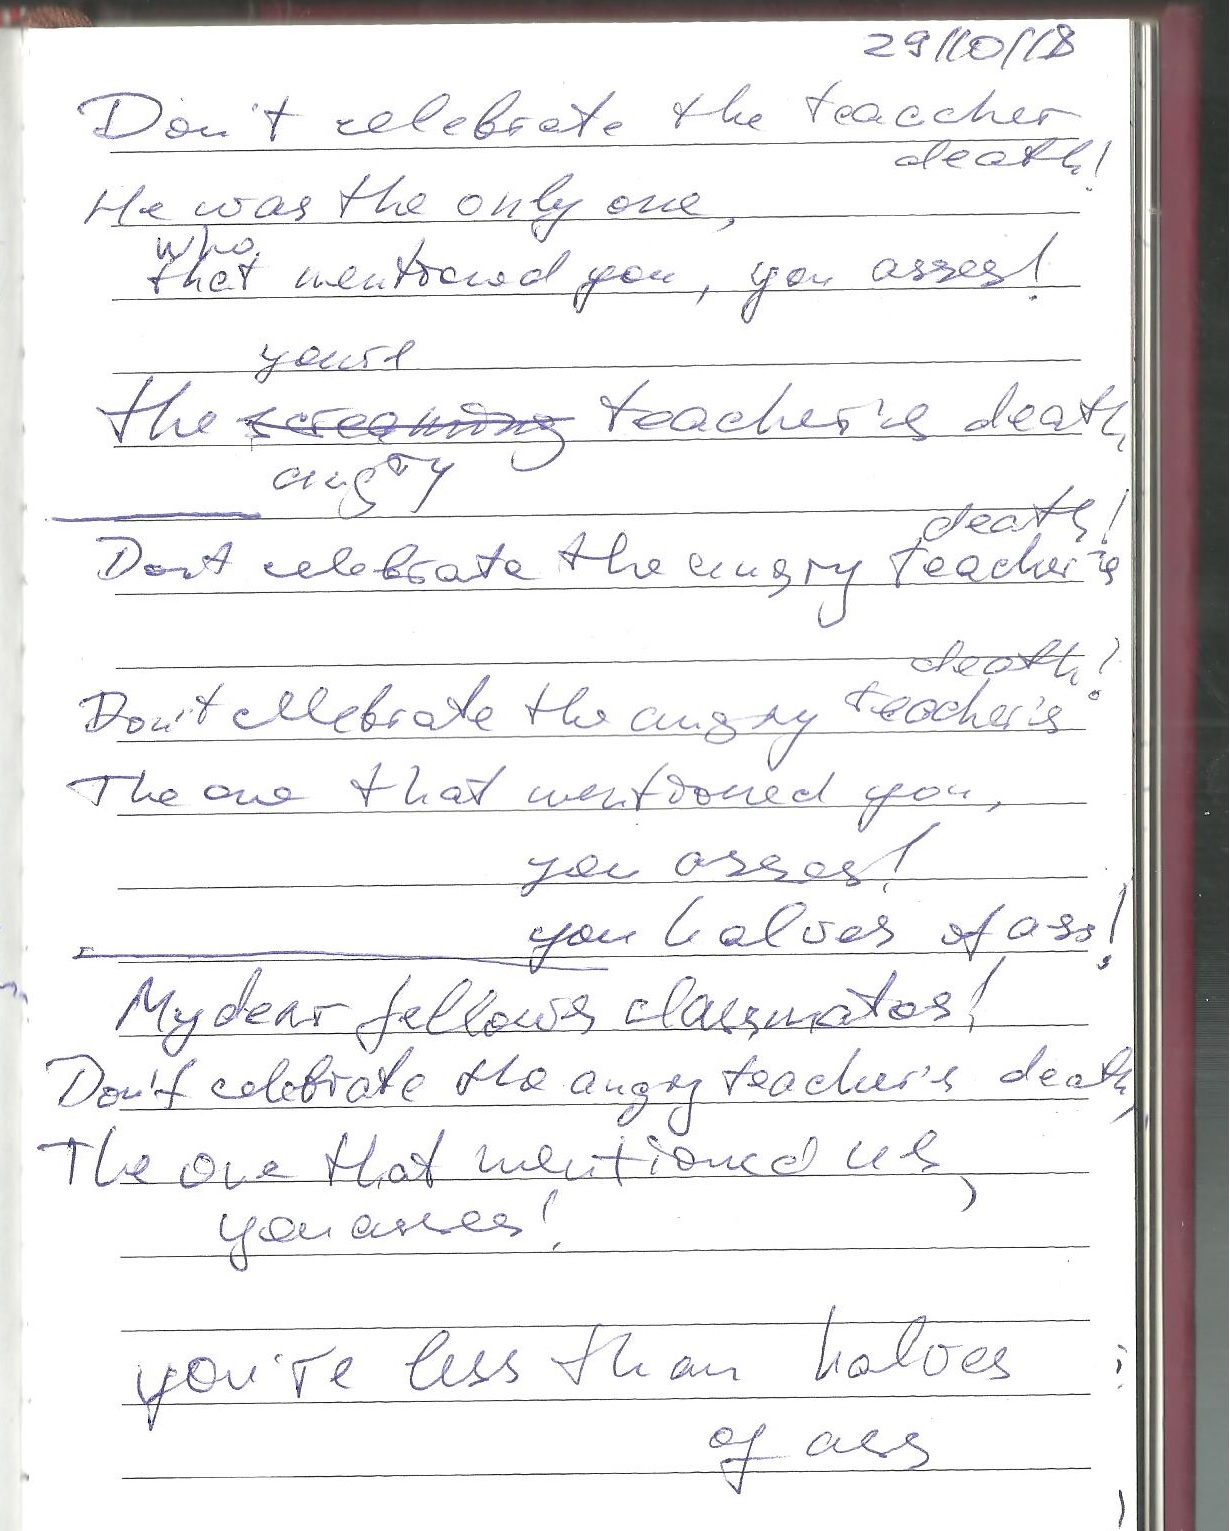 29/10/18
Don't celebrate the teaccher
death!
He was the only one,
who
that mentioned you, you asses!
youre
the screaming teacher's death
angry
death!
Dont celebrate the angry teacher's
death!
Don't cellebrate the angry teacher's
The one that mentioned you,
you asses!
you halves of ass!
My dear fellows classmates!
Don't celebrate the angry teacher's death,
The one that mentioned us,
you asses!
you're less than halves
of ass